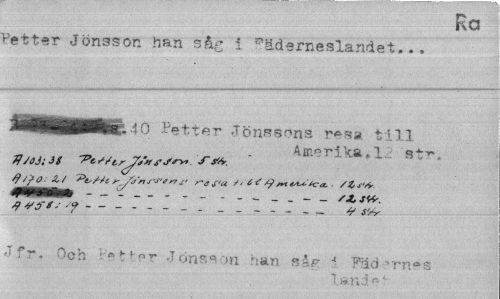 Ra
Petter Jönsson han såg i Fäderneslandet...
s.40 Petter Jönssons resa till
Amerika.12 str.
A103:38 Petter Jönsson. 5 str.
A170:21 Petter Jönssons resa till Amerika. 12 str.
A456:2 - - - - - - - - - - - - - 12 str.
A458:19 - - - - - - - - - - - - 4 str
Jfr. Och Petter Jönsson han såg i Fädernes
landet